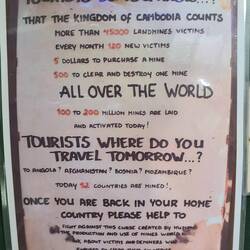 THAT THE KINGDOM OF CAMBODIA COUNTS
MORE THAN 45000 LANDMINES VICTIMS
EVERY MONTH 120 NEW VICTIMS
5 DOLLARS TO PURCHASE A MINE
500 TO CLEAR AND DESTROY ONE MINE
ALL OVER THE WORLD
100 TO 200 MILLION MINES ARE LAID
AND ACTIVATED TODAY!
TOURISTS WHERE DO YOU
TRAVEL TOMORROW...?
TO ANGOLA? AFGHANISTAN? BOSNIA? MOZAMBIQUE?
TODAY 52 COUNTRIES ARE MINED!,
ONCE YOU ARE BACK IN YOUR HOME
COUNTRY PLEASE HELP TO
FIGHT AGAINST THIS CURSE CREATED BY
THE PRODUCTION AND USE OF MINES
ABOUT VICTIMS AND DEMINERS WHO